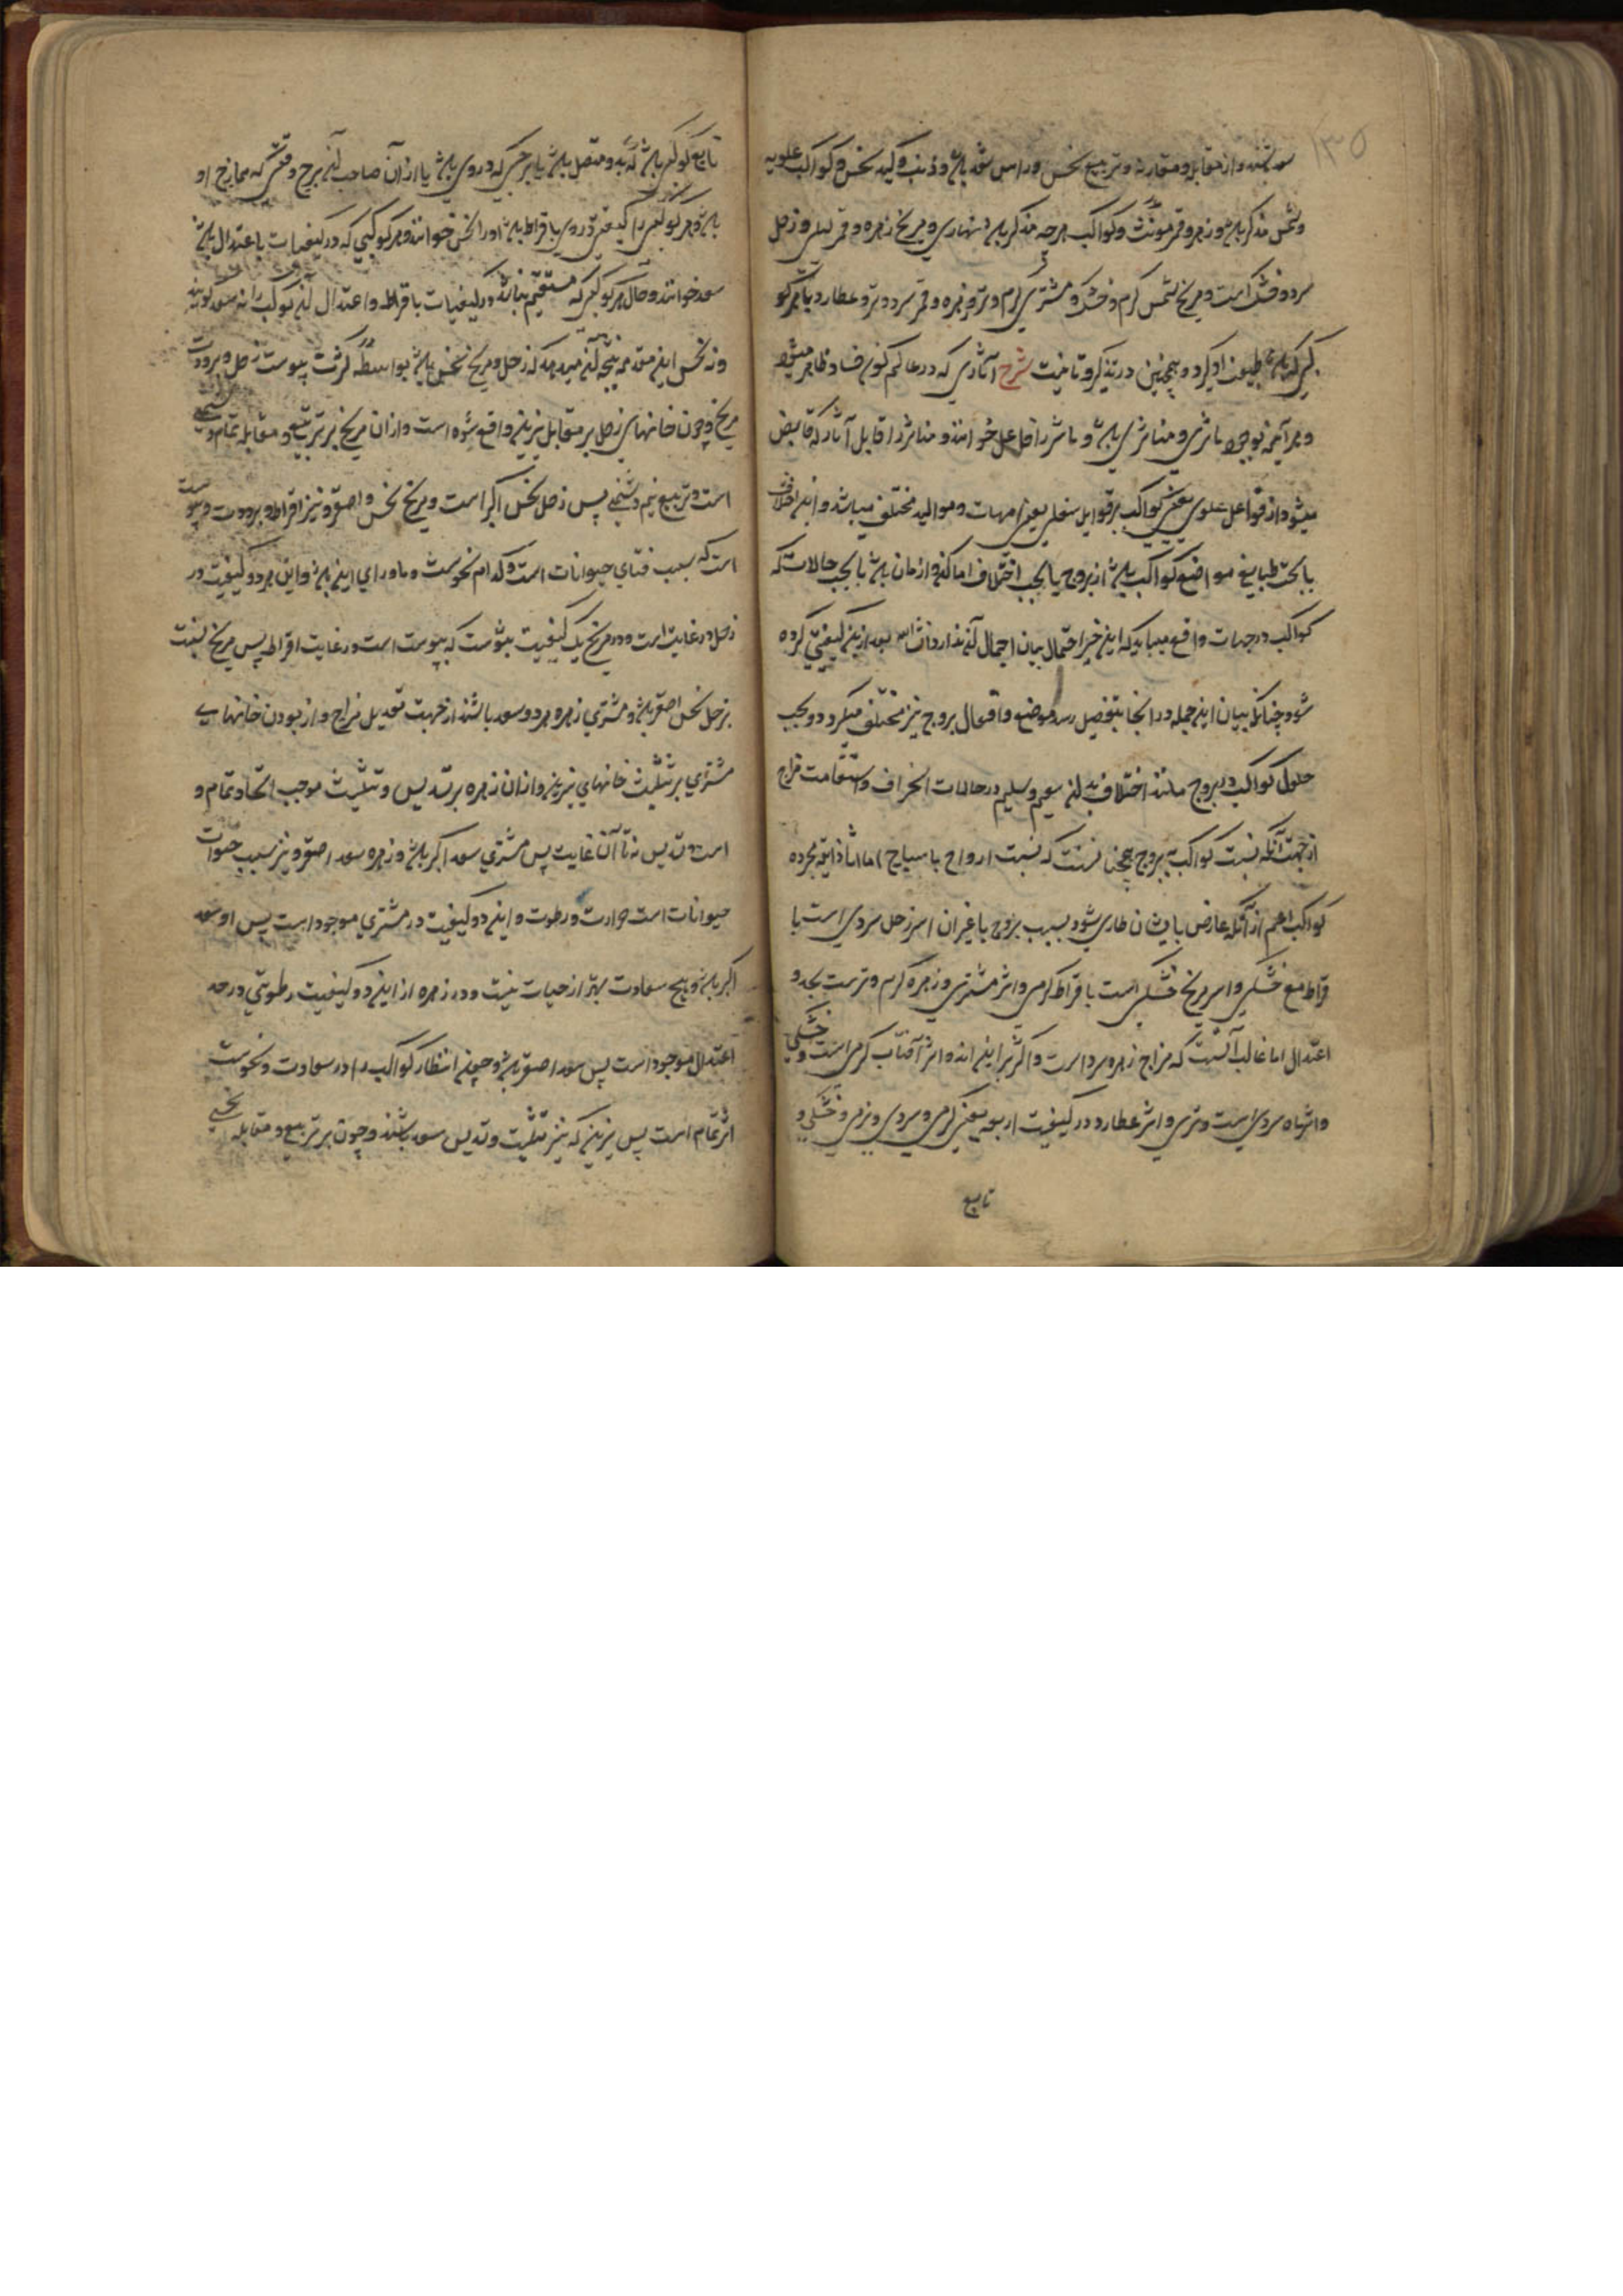 ۱۳۵
سعد باشند و از مقابله و مقارنه و تربیع نحس و راس سعد باشد و ذنب و کید نحس و کواکب علویه
و شمس مذکر باشد و زهره و قمر مونث و کواکب هرچه مذکر باشد نهاری و مریخ زهره و قمر لیلی و زحل
سرد و خشک است و مریخ و شمس گرم و خشک و مشتری گرم و تر و زهره و قمر سرد و تر و عطارد با هر کو
کبی که باشد طبیعت او گیرد و همچنین در تذکیر و تانیث شرح آثاری که در عالم کون و فساد ظاهر میشود
و هر آینه بوجود ماثری و متاثری باشد و ماثر را فاعل خوانند و متاثر را قابل آثار که فایض
میشود از فواعل علوی یعنی کواکب بر قوابل سفلی یعنی امهات و موالید مختلف میباشد و این اختلاف
یا بحسب طبایع مواضع کواکب باشد از بروج یا بحسب اختلاف اماکن و ازمان باشد یا بحسب حالات که
کواکب در جهات واقع میباید که این خبر احتمال بیان اجمال آن ندارد انشاالله بعد ازین کیفیتی کرده
شود چنانکه بیان این جمله در آنجا بتفصیل رسد و موضع و افعال بروج نیز مختلف میگردد و بحسب
حلول کواکب در بروج مانند اختلاف بدن سقیم و سلیم در حالات انحراف و استقامت مزاج
از جهت آنکه نسبت کواکب ببروج همچنانست که نسبت ارواح با سیاح اما اثار ذاتیه مجرده
کواکب اعم از آنکه عارض بایشان طاری شود بسبب بروج یا غیر آن اثر زحل سردی است با
فراط مع خشکی و اثر مریخ خشکی است با فراط گرمی و اثر مشتری و زهره گرم و ترست بحد و
اعتدال اما غالب آنست که مزاج زهره سرد است و اکثر براین اند و اثر آفتاب گرمی است و خشکی
و اثر ماه سردی است و تری و اثر عطارد در کیفیت اربعه یعنی گرمی و سردی و نرمی و خشکی و
تابع
تابع کوکبی باشد که بدو متصل باشد یا برجی که در وی باشد یا از آن صاحب آن برج و قسی که ممازج او
باشد و هر کوکبی را کیفیتی در وی بافراط باشد او را نحس خوانند و هر کوکبی که در کیفیات باعتدال باشد
سعد خوانند و حال هر کوکبی که مستقیم نباشد در کیفیات بافراط و اعتدال آن کوکب را نه سعد گویند
و نه نحس این مقدمه نتیجه آن میدهد که زحل و مریخ نحس باشد بواسطه کثرت یبوست زحل و برودت
مریخ و چون خانهای زحل بر مقابل نیرین واقع شده است و از آن مریخ بر تربیع و مقابله تمام دشمنی
است و تربیع نیم دشمنی پس زحل نحس اکبر است و مریخ نحس و اصغر و نیز افراط و برودت و یبوست
است که سبب فنای حیوانات است و کدام نحوست و ماورای این باشد و این هر دو کیفیت در
زحل در غایت است و در مریخ یک کیفیت بیش نیست که یبوست است در غایت افراط پس مریخ نسبت
بزحل نحس اصغر باشد و مشتری زهره هر دو سعد باشند از جهت تعدیل مزاج و از بودن خانهای
مشتری بر تثلیث خانهای نیرین و از آن زهره بر تسدیس و تثلیث موجب اتحاد تمام و
است و تسدیس نه تا آن غایت پس مشتری سعد اکبر باشد و زهره سعد اصغر و نیز سبب حیوات
حیوانات است حرارت و رطوبت و این دو کیفیت در مشتری موجود است پس او سعد
اکبر باشد و هیچ سعادت بهتر از حیات نیست و در زهره از این دو کیفیت رطوبتی در حد
اعتدال موجود است پس سعد اصغر باشد و چون انتظار کواکب را در سعادت و نحوست
اثر تمام است پس نیرین که نیز تثلیث و تسدیس سعد باشند و چون بر تربیع و مقابله نحسی